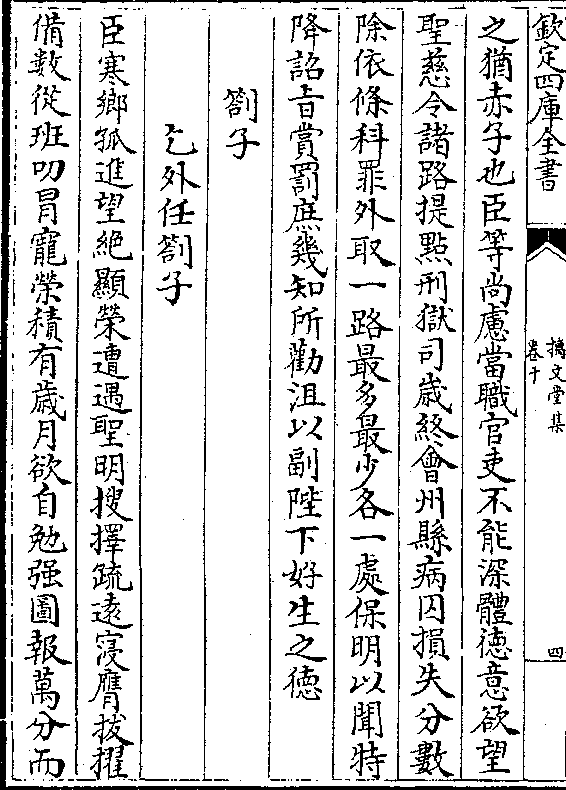 欽定四庫全書
摛文堂集
卷十
四
之猶赤子也臣等尚慮當職官吏不能深體徳意欲望
聖慈令諸路提點刑獄司歳終會州縣病囚損失分數
除依條科罪外取一路最多最少各一處保明以聞特
降詔旨賞罰庶幾知所勸沮以副陛下好生之徳
劄子
乞外任劄子
臣寒鄉孤進望絶顯榮遭遇聖明搜擇疏逺寖膺拔擢
備數從班叨冐寵榮積有歳月欲自勉强圖報萬分而